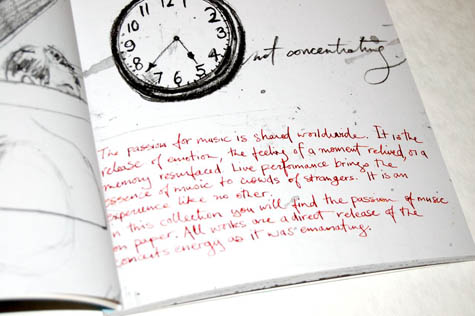 12 1 2 3 4 5 6 7 8 9 10 11
not concentrating
The passion for music is shared worldwide. It is the
release of emotion, the feeling of a moment relived, or a
memory resurfaced. Live perfomance brings the
essence of music to crowds of strangers. It is an
experience like no other.
In this collection you will find the passion of music
on paper. All works are a direct release of the
concerts energy as it was emanating.